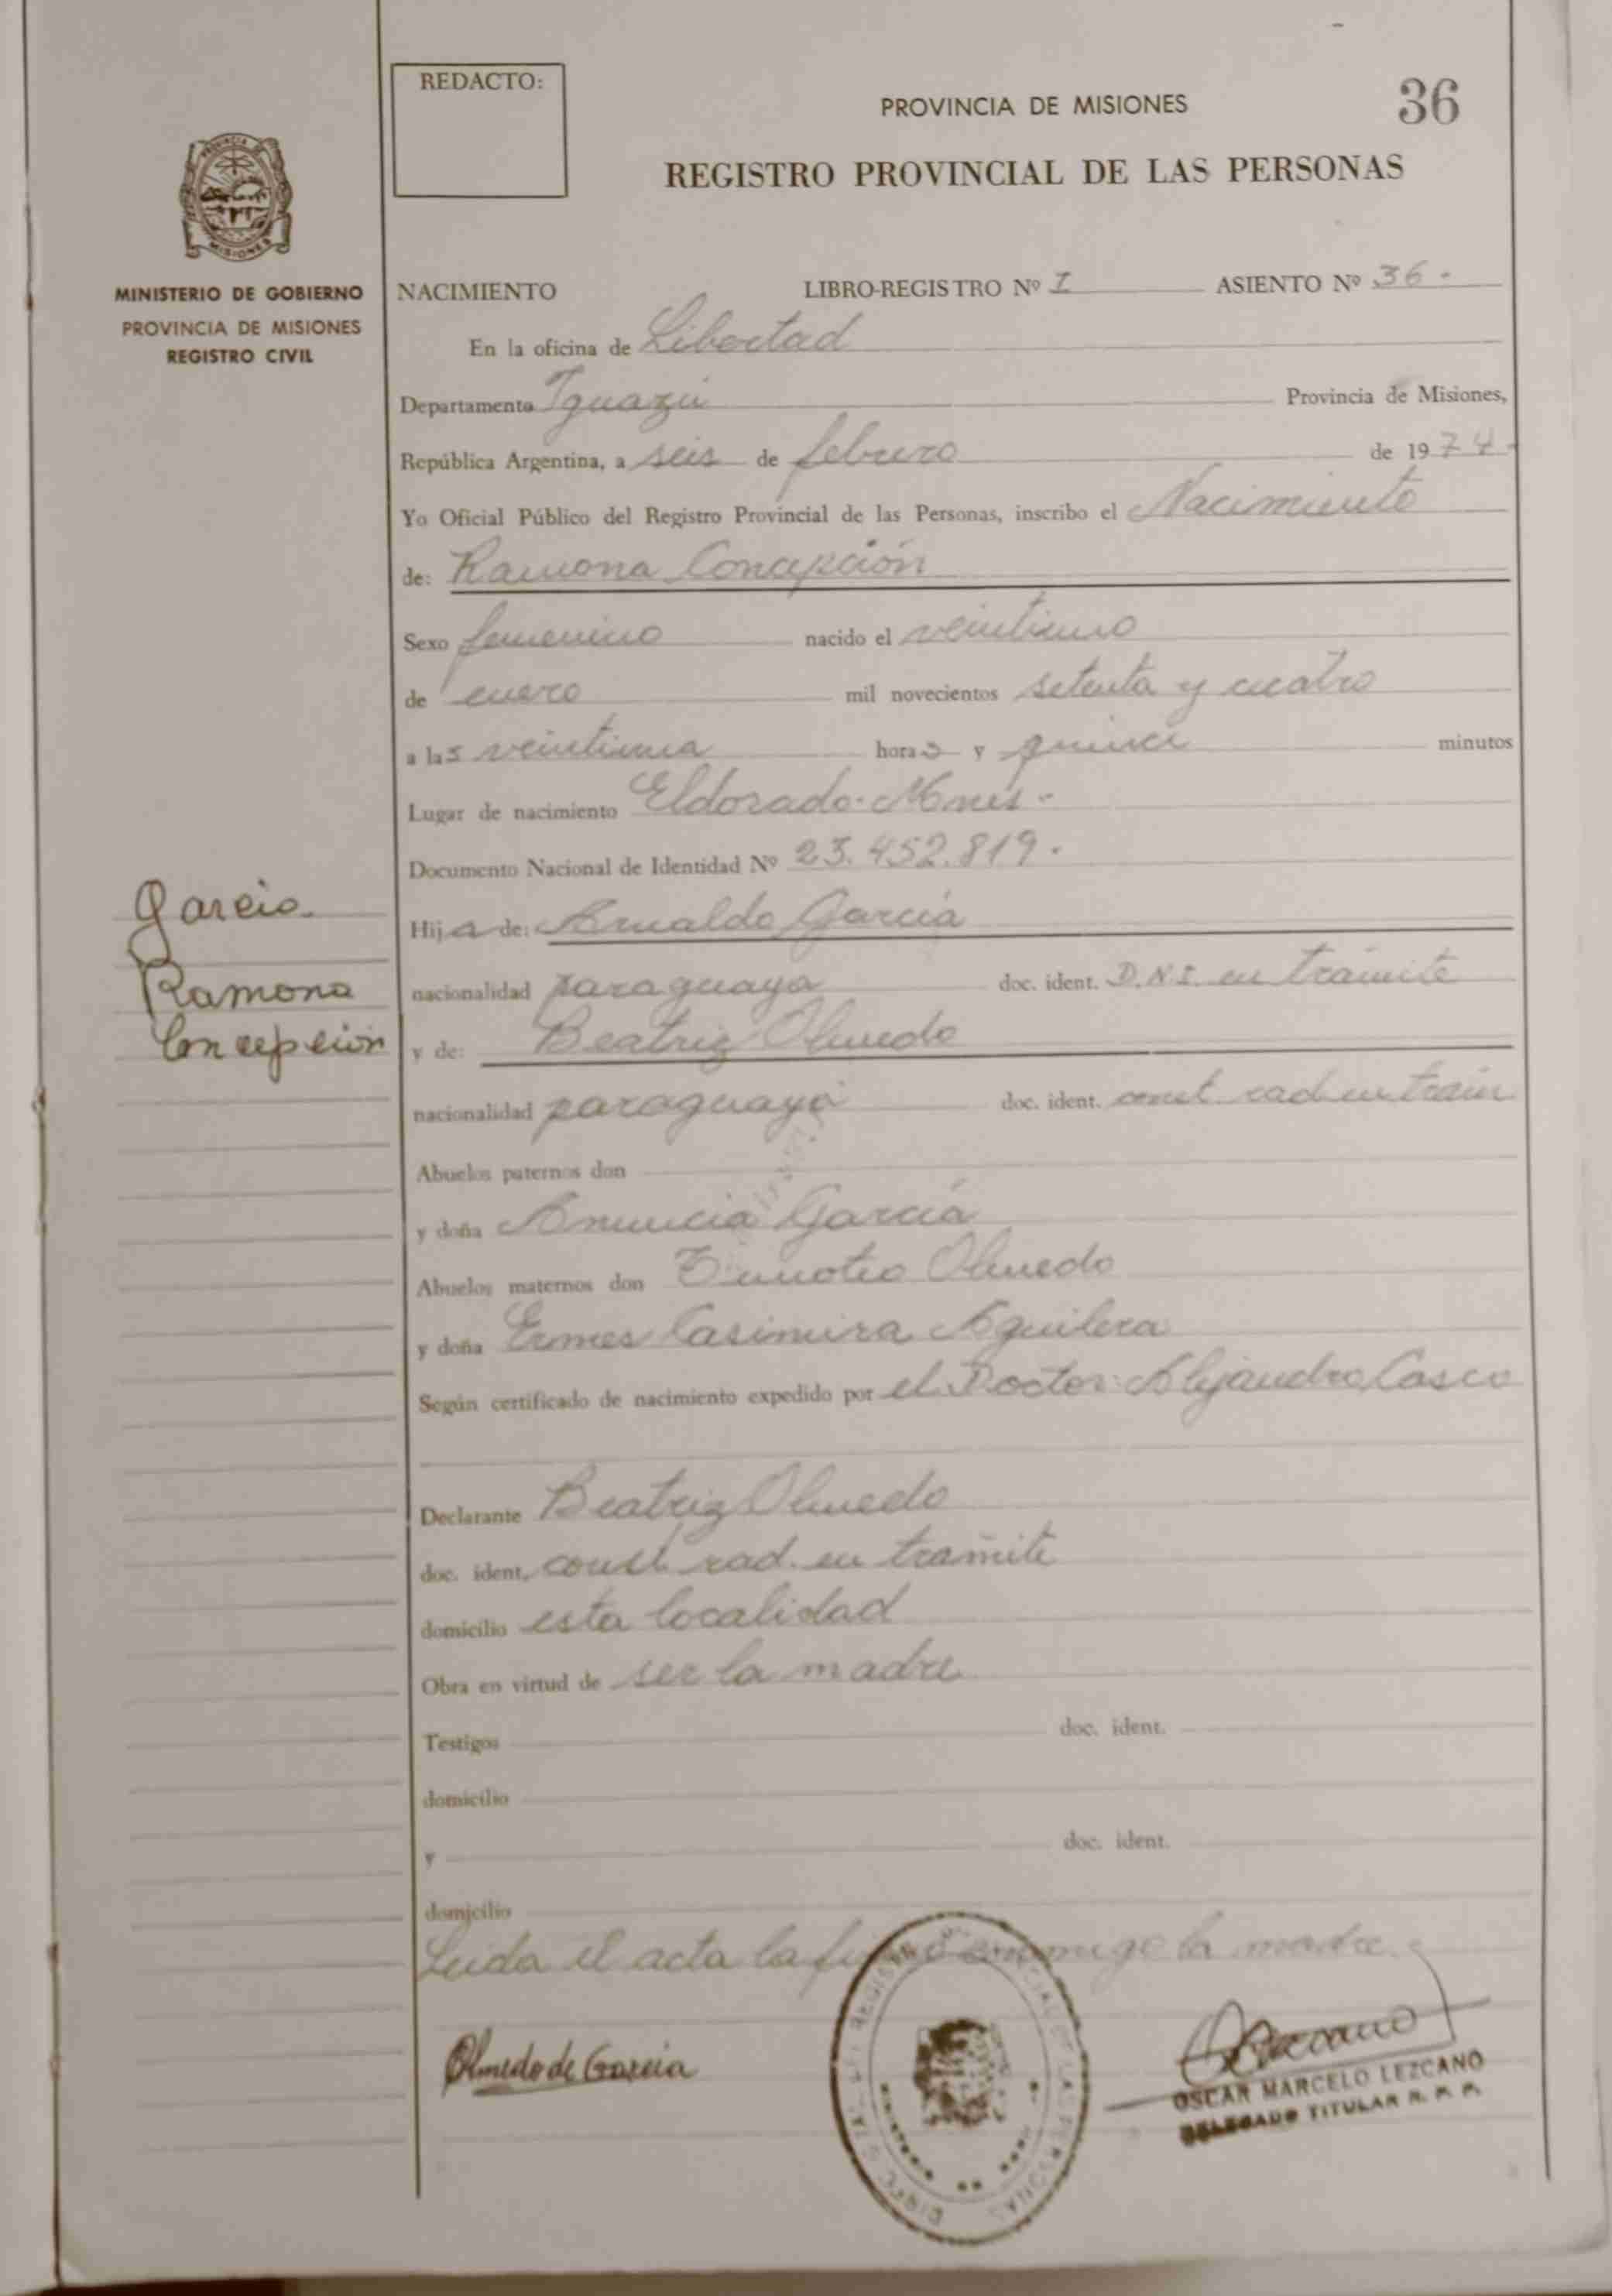 REDACTO:
PROVINCIA DE MISIONES
36
REGISTRO PROVINCIAL DE LAS PERSONAS
PROVINCIA DE
MISIONES
MINISTERIO DE GOBIERNO
PROVINCIA DE MISIONES
REGISTRO CIVIL
NACIMIENTO LIBRO-REGISTRO Nº I ASIENTO Nº 36.
En la oficina de Libertad
Departamento Iguazú Provincia de Misiones,
República Argentina, a seis de febrero de 1974.
Yo Oficial Público del Registro Provincial de las Personas, inscribo el Nacimiento
de: Ramona Concepción
Sexo femenino nacido el veintiuno
de enero mil novecientos setenta y cuatro
a las veintiuna horas y quince minutos
Lugar de nacimiento Eldorado-Mnes.
Documento Nacional de Identidad Nº 23.452.819.
Garcia
Ramona
Concepción
Hija de: Arnaldo García
nacionalidad paraguaya doc. ident. D.N.I. en trámite
y de: Beatriz Olmedo
nacionalidad paraguaya doc. ident. const. rad en trám
Abuelos paternos don
y doña Anuncia García
Abuelos maternos don Timoteo Olmedo
y doña Ermes Casimira Aguilera
Según certificado de nacimiento expedido por el Doctor: Alejandro Casco
Declarante Beatriz Olmedo
doc. ident. const. rad. en tramite
domicilio esta localidad
Obra en virtud de ser la madre
Testigos doc. ident.
domicilio
y doc. ident.
domicilio
Leida el acta la firmó conmigo la madre.
Olmedo de Garcia
OSCAR MARCELO LEZCANO
DELEGADO TITULAR R. P. P.